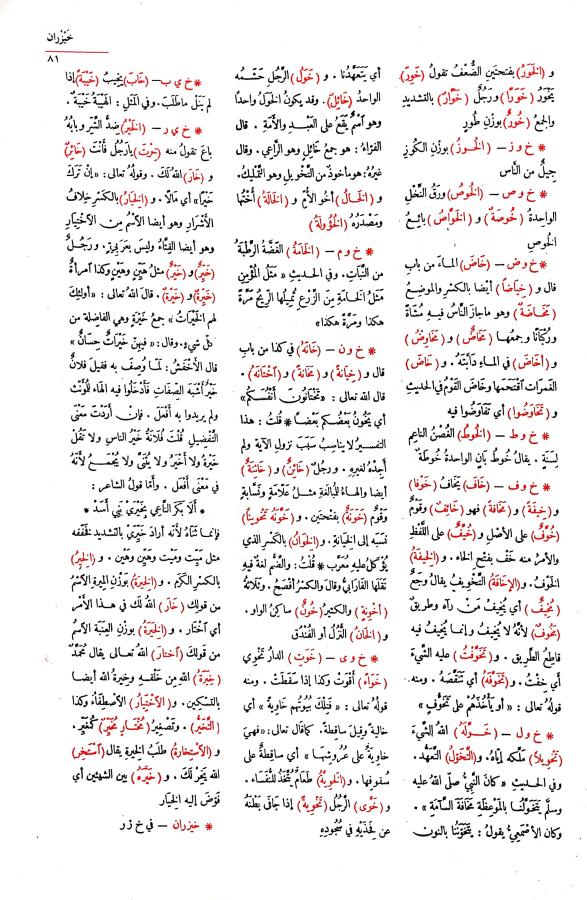 خَيْزُران
٨١
و (الخَوَرُ) بفتحتين الضُّعْفُ تقولُ (خَوِرَ)
يَخْوَرُ (خَوَرًا) ورَجُلٌ (خَوَّارٌ) بالتشديد
والجمعُ (خُورٌ) بوزْنِ طُورٍ
* خ و ز – (الخُوزُ) بوزن الكُوزِ
جِيلٌ من الناس
* خ و ص – (الخُوصُ) ورَقُ النَّخْلِ
الواحدةُ (خُوصَةٌ) و (الخَوَّاصُ) بائِعُ
الخُوصِ
* خ و ض – (خَاضَ) الماءَ من باب
قال و (خِيَاضًا) أيضا بالكسر والموضِعُ
(مَخَاضَةٌ) وهو ماجازَ النَّاسُ فيهِ مُشَاةً
ورُكْبَانًا وجمعُها (مَخَاضٌ) و (مَخَاوِضُ)
و (أخَاضَ) في الماءِ دَابَّتَهُ . و (خَاضَ)
الغَمَراتِ اقْتَحَمها وخَاضَ القَوْمُ في الحديثِ
و (تَخَاوَضُوا) أي تَفَاوَضُوا فيه
* خ و ط – (الخُوطُ) الغُصْنُ الناعِمُ
لِسَنَةٍ . يقالُ خُوطُ بَانٍ الواحدةُ خُوطَةٌ
* خ و ف – (خَافَ) يَخَافُ (خَوْفا)
و (خِيفَةً) و (مَخَافَةً) فهو (خَائِفٌ) وقَوْمٌ
(خُوَّفٌ) على الأصْلِ و (خُيَّفٌ) على اللَّفْظِ
والأمرُ منه خَفْ بفتح الخاء . و (الخِيفَةُ)
الخَوْفُ . و (الإخَافَةُ) التَّخْوِيفُ يقالُ وجَعٌ
(مُخِيفٌ) أي يُخِيفُ مَنْ رآه وطريقٌ
(مَخُوفٌ) لأنَّهُ لا يُخِيفُ وإنما يُخِيفُ فيه
قاطعُ الطَّرِيقِ . و (تَخَوَّفْتُ) عليه الشَّيْءَ
أي خِفْتُ . و (تَخَوَّفَهُ) أي تَنَقَّصَهُ . ومنه
قولُهُ تعالى : « أو يَأْخُذَهُمْ على تَخَوُّفٍ »
* خ و ل – (خَوَّلَهُ) اللهُ الشَّيْءَ
(تَخْوِيلًا) مَلَّكه إيَّاهُ. و(التَّخَوُّلُ) التَّعَهُّد .
وفي الحديثِ «كانَ النَّبيُّ صلّى اللهُ عليه
وسلَّم يَتَخَوَّلُنا بالمَوْعِظَةِ مَخَافَةَ السَّآمَةِ» .
وكان الأصْمعيُّ يقولُ : يَتَخَوَّنُنَا بالنون
أي يَتَعَهَّدُنَا . و (خَوَلُ) الرَّجُلِ حَشَمُه
الواحدُ (خَائِلٌ) . وقد يكونُ الخَوَلُ واحدًا
وهو اسْمٌ يقَعُ على العَبْدِ والأَمَةِ . قال
الفَرَّاءُ : هو جمعُ خائِلٍ وهو الرَّاعِي . وقال
غيرُهُ: هو مأخوذٌ من التَّخْوِيلِ وهو التَّمْلِيكُ.
و (الخَالُ) أخُو الأُمِّ و (الخَالَةُ) أُخْتُها
ومَصْدَرُهُ (الخُؤُولَةُ)
* خ و م – (الخَامَةُ) الغَضَّةُ الرَّطْبَةُ
من النَّبَاتِ. وفي الحديثِ « مَثَلُ المُؤْمِنِ
مَثَلُ الخَامَةِ مِنَ الزَّرْعِ تُمِيلُها الرِّيحُ مَرَّةً
هكذا ومَرَّةً هكذا»
* خ و ن – (خَانَهُ) في كذا من باب
قال و (خِيَانَةً) و (مَخَانَةً) و (اخْتَانَهُ) .
قال الله تعالى: « تَخْتَانُونَ أنْفُسَكُم»
أي يَخُونُ بَعْضُكم بَعْضا * قُلْتُ : هذا
التفسيرُ لا يناسِبُ سَبَبَ نزولِ الآيةِ ولم
أجِدْهُ لغيرِهِ . ورجلٌ (خَائِنٌ) و (خَائِنَةٌ)
أيضا والهاءُ للْمُبالغَةِ مِثْلُ عَلَّامَةٍ ونَسَّابةٍ
وقَوْمٌ (خَوَنَةٌ) بفتحتين . و (خَوَّنَهُ تَخْوِينًا)
نَسَبَه إلى الخِيَانةِ . و (الخِوَانُ) بالكَسْرِ الذي
يُؤْكلُ عليه مُعَرَّب * قُلْتُ : والضَّمُّ لغةٌ فيه
نَقَلَها الفَارَابيُّ وقال والكَسْرُ أفصَحُ . وثلاثةُ
(أخْوِنَةٍ) والكثيرُ (خُونٌ) ساكنُ الواو .
و (الخَانُ) النُّزُلُ أو الفُنْدُق
* خ و ى – (خَوَتِ) الدارُ تَخْوِي
(خَوَاءً) أقْوَتْ وكذا إذا سَقَطَتْ . ومنه
قوله تعالى : « فَتِلْكَ بُيُوتُهُم خَاوِيَةً » أي
خاليةً وقيلَ ساقِطةً. كما قال تعالى: «فهي
خاوِيةٌ على عُرُوشِها » أي ساقِطةٌ على
سُقوفِها . و (الخَوِيَّةُ) طَعَامٌ يُتَّخَذُ للنُّفَسَاءِ .
و (خَوَّى) الرَّجُلُ (تَخْوِيةً) إذا جَافَى بَطْنَهُ
عن فَخِذَيْهِ في سُجُودِهِ
* خ ي ب – (خَابَ) يَخِيبُ (خَيْبَةً) إذا
لم يَنَلْ ماطَلَبَ. وفي المَثَلِ : الهَيْبَةُ خَيْبَةٌ .
* خ ي ر – (الخَيْرُ) ضِدُّ الشَّرِّ وبابُهُ
باعَ تقولُ منه (خِرْتَ) يارَجُلُ فأنتَ (خَائِرٌ)
و (خَارَ) اللهُ لك . وقولُهُ تعالى: «إنْ تَرَكَ
خَيْرًا» أي مَالًا . و (الخِيَارُ) بالكَسْرِ خِلافُ
الأشْرارِ وهو أيضا الاسْمُ مِنَ الاخْتِيَارِ
وهو أيضا القِثَّاءُ وليسَ بعَرَبيٍّ. ورَجُلٌ
(خَيِّرٌ) و (خَيْرٌ) مثلُ هَيِّنٍ وهَيْنٍ وكذا امرأةٌ
(خَيِّرَةٌ) و (خَيْرَةٌ) . قال اللهُ تعالى : «أولئِكَ
لهم الخَيْراتُ» جمعُ خَيْرَةٍ وهي الفاضِلةُ من
كلِّ شيءٍ. وقال: «فيهنَّ خَيْرَاتٌ حِسَانٌ»
قال الأخْفَشُ : لمَّا وُصِفَ به فقيلَ فلانٌ
خَيْرٌ أشْبهَ الصِّفاتِ فأدْخَلُوا فيه الهاءَ للْمؤَنّثِ
ولم يريدوا به أفْعَلَ . فإن أرَدْتَ معنَى
التَّفْضِيلِ قُلتَ فُلانَةُ خَيْرُ الناسِ ولا تَقُلْ
خَيْرَةُ ولا أخْيَرُ ولا يُثَنَّى ولا يُجْمَعُ لأنَّهُ
في معنَى أفْعَل . وأمَّا قولُ الشاعر :
* ألا بَكَرَ النَّاعِي بِخَيْرَيْ بَنِي أَسَدْ *
فإنما ثنَّاهُ لأنَّهُ أرادَ خَيِّرَيْ بالتشديد فخَفَّفه
مثل مَيِّتٍ ومَيْتٍ وهَيِّنٍ وهَيْنٍ . و (الخِيرُ)
بالكسرِ الكَرَم . و (الخِيرَةُ) بوَزْنِ المِيرَةِ الاسْمُ
من قولِك (خَارَ) اللهُ لك في هذا الأمْرِ
أي اخْتارَ . و (الخِيَرَةُ) بوزن العِنَبَةِ الاسمُ
من قولك (اختارَ) اللهُ تعالى يقال مُحَمَّدٌ
(خِيَرَةُ) اللهِ مِن خَلْقِهِ وخِيرَةُ الله أيضا
بالتسكين . و (الاخْتِيَارُ) الاصْطِفَاءُ وكذا
(التَّخَيُّرُ) . وتَصْغِيرُ (مُخْتَارٍ مُخَيِّرٌ) كَمُغَيِّرٍ .
و (الاسْتِخَارةُ) طَلَبُ الخِيَرَةِ يقالُ (اسْتَخِرِ)
اللهَ يَخِرْ لك . و (خَيَّرَهُ) بين الشيئين أي
فَوّضَ إليه الخِيَار
* خيزران – في خ ز ر